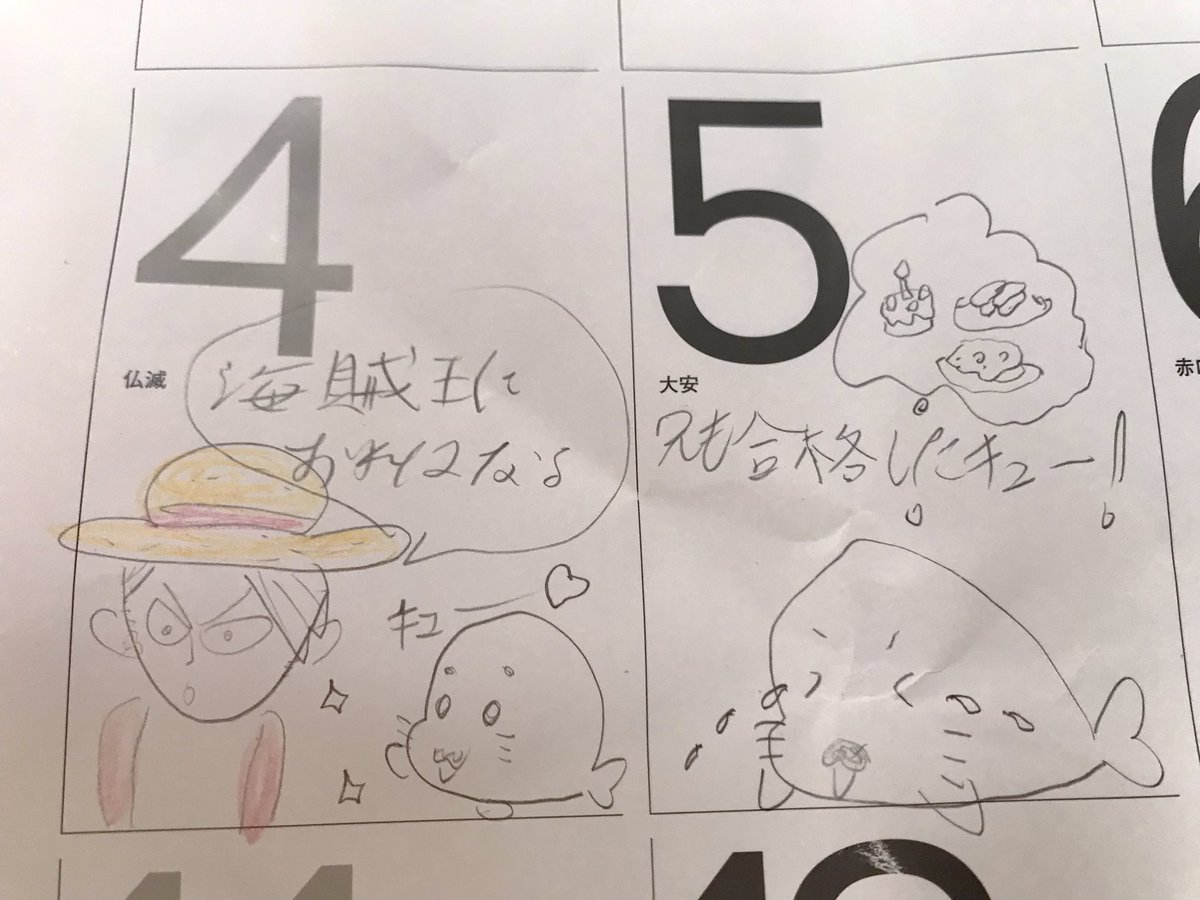 4
仏滅
海賊王に
おれはなる
キュー♡
5
大安
も合格したキュー!!
6
赤口